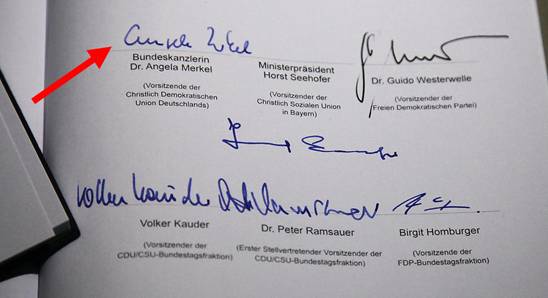 Bundeskanzlerin
Dr. Angela Merkel
(Vorsitzende der
Christlich Demokratischen
Union Deutschlands)
Ministerpräsident
Horst Seehofer
(Vorsitzender der
Christlich Sozialen Union
in Bayern)
Dr. Guido Westerwelle
(Vorsitzender der
Freien Demokratischen Partei)
Volker Kauder
Volker Kauder
(Vorsitzender der
CDU/CSU-Bundestagsfraktion)
Dr. Peter Ramsauer
(Erster Stellvertretender Vorsitzender der
CDU/CSU-Bundestagsfraktion)
Birgit Homburger
(Vorsitzende der
FDP-Bundestagsfraktion)